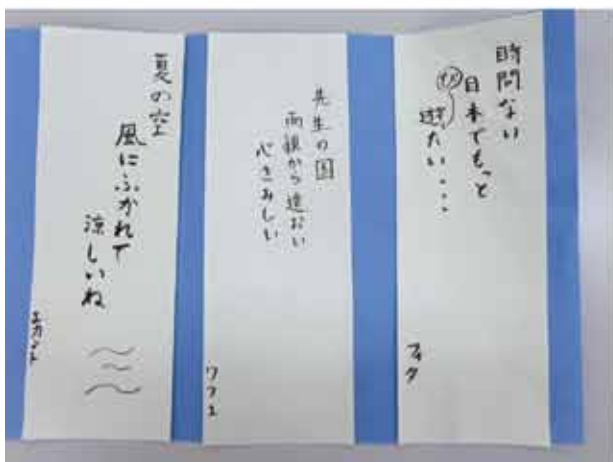 時間ない
日本でもっと
遊びたい・・・
フィタ
先生の国
両親から遠おい
心さみしい
ワフユ
夏の空
風にふかれて
涼しいね